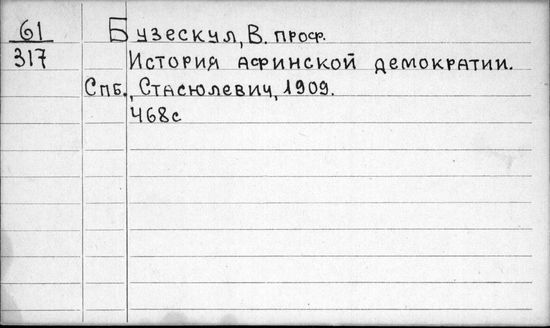 61
317
Бузескул, В. проф.
История афинской демократии.
Спб., Стасюлевич, 1909.
468с